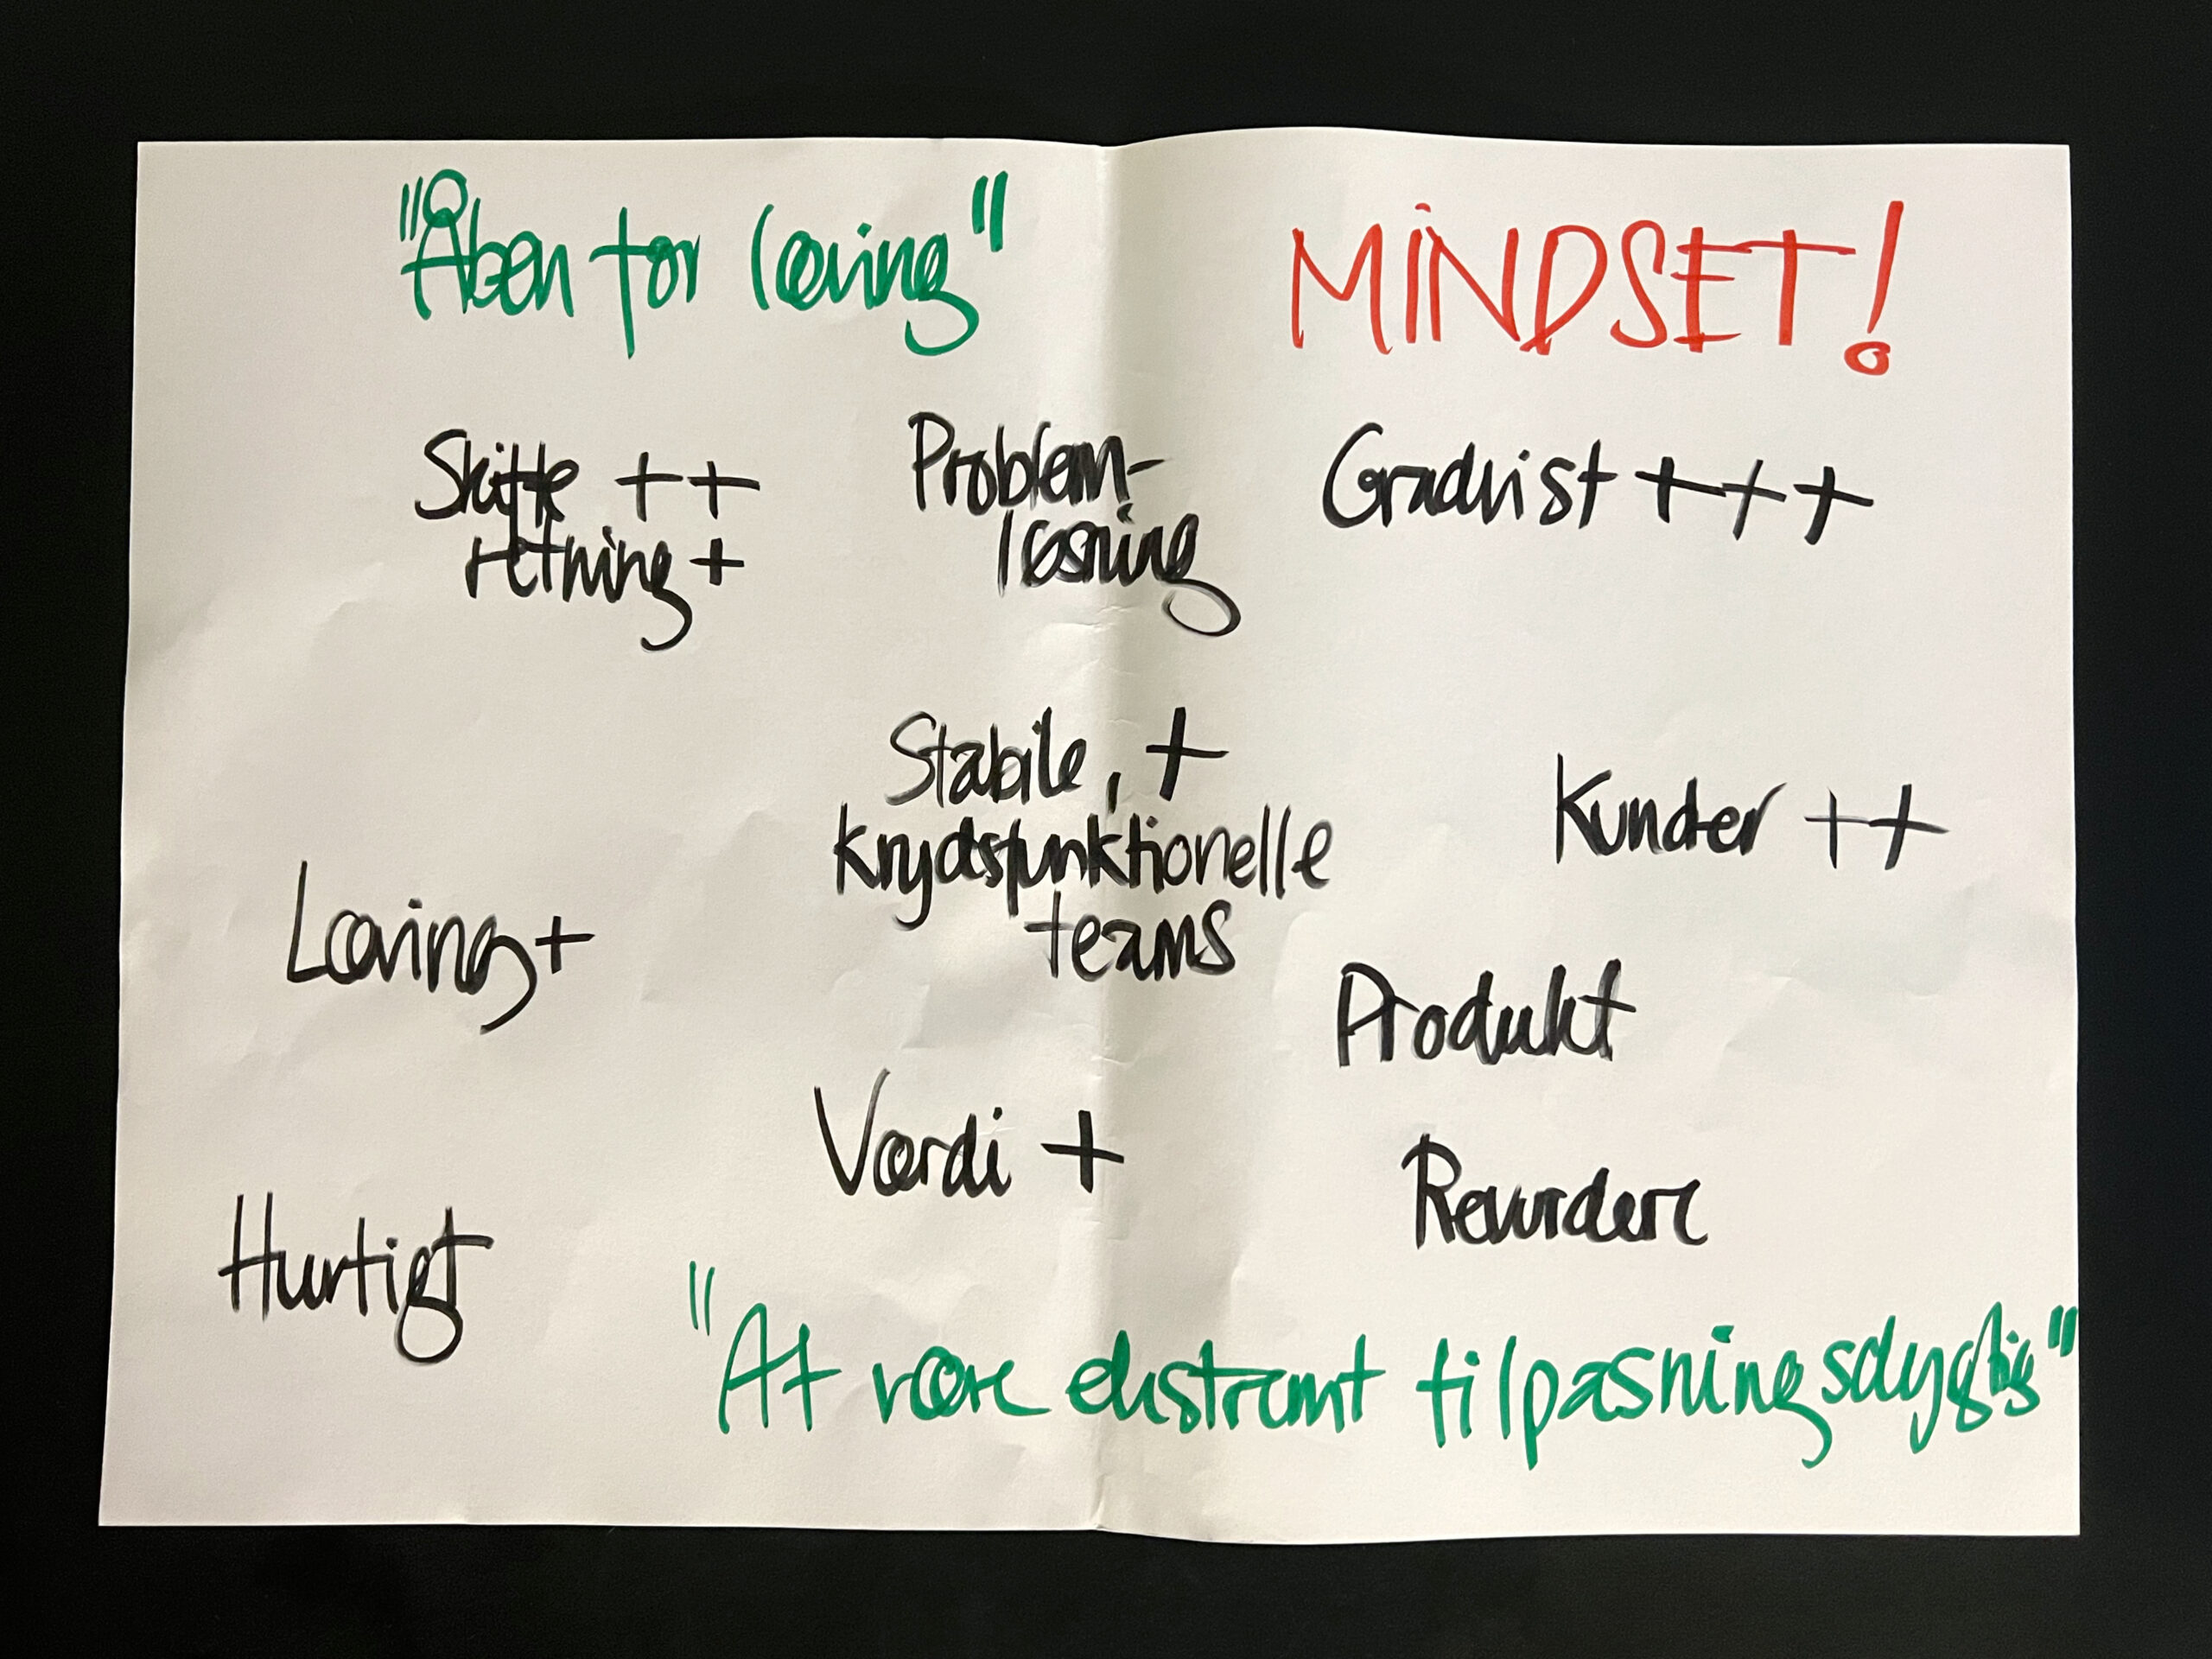 "Åben for læring"
MINDSET!
Skifte ++
retning +
Problem-
løsning
Gradvist +++
Stabile, +
krydsfunktionelle
teams
Kunder ++
Læring +
Produkt
Værdi +
Revurdere
Hurtigt
"At være ekstremt tilpasningsdygtig"